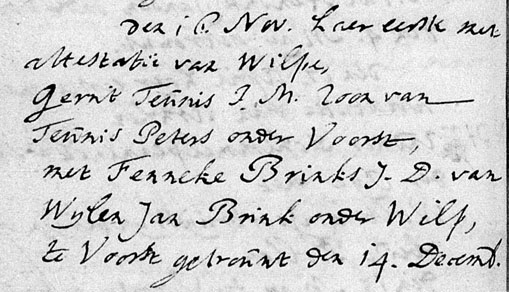 den 18 Nov. haer eerste met
attestatie van Wilpe,
Gerrit Teunis J. M. zoon van
Teunis Peters onder Voorst,
met Fenneke Brinks J. D. van
Wylen Jan Brink onder Wilp,
te Voorst getrouwt den 14. Decemb.